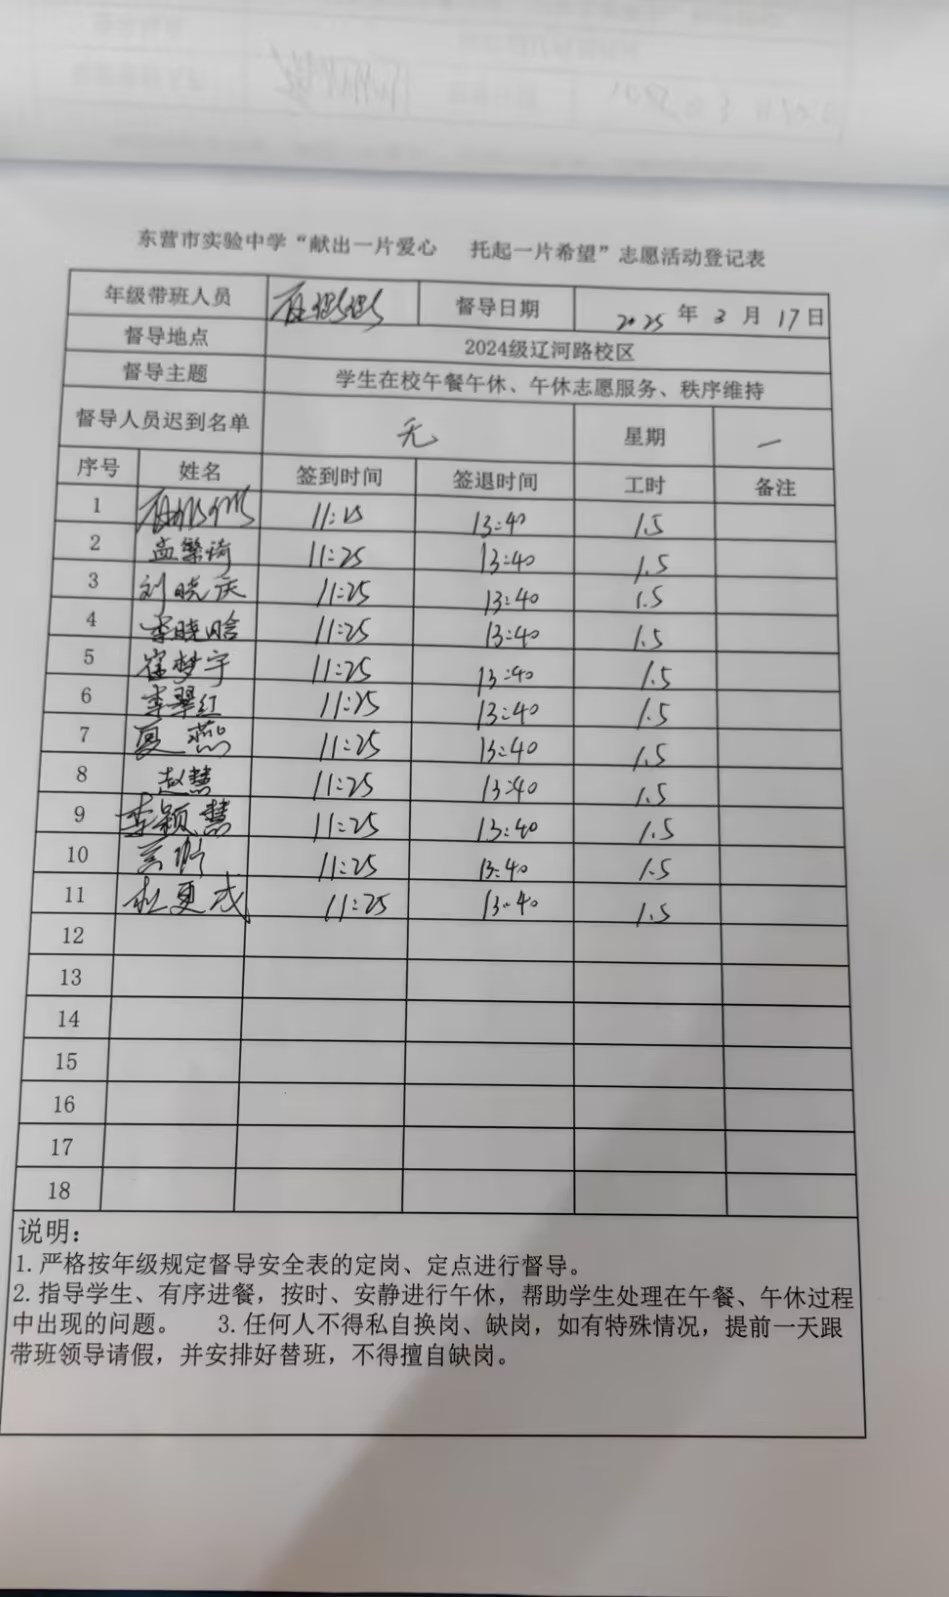 东营市实验中学“献出一片爱心 托起一片希望”志愿活动登记表
年级带班人员 督导日期 2025 年 3 月 17 日
督导地点 2024级辽河路校区
督导主题 学生在校午餐午休、午休志愿服务、秩序维持
督导人员迟到名单 无 星期 一
序号 姓名 签到时间 签退时间 工时 备注
1 13:40 1.5
2 孟繁琦 11:25 13:40 1.5
3 刘晓庆 11:25 13:40 1.5
4 李晓晗 11:25 13:40 1.5
5 崔梦宇 11:25 13:40 1.5
6 李翠红 11:25 13:40 1.5
7 夏燕 11:25 13:40 1.5
8 赵慧 11:25 13:40 1.5
9 李颖慧 11:25 13:40 1.5
10 11:25 13:40 1.5
11 杜更成 11:25 13:40 1.5
12
13
14
15
16
17
18
说明：
1. 严格按年级规定督导安全表的定岗、定点进行督导。
2. 指导学生、有序进餐，按时、安静进行午休，帮助学生处理在午餐、午休过程
中出现的问题。 3. 任何人不得私自换岗、缺岗，如有特殊情况，提前一天跟
带班领导请假，并安排好替班，不得擅自缺岗。